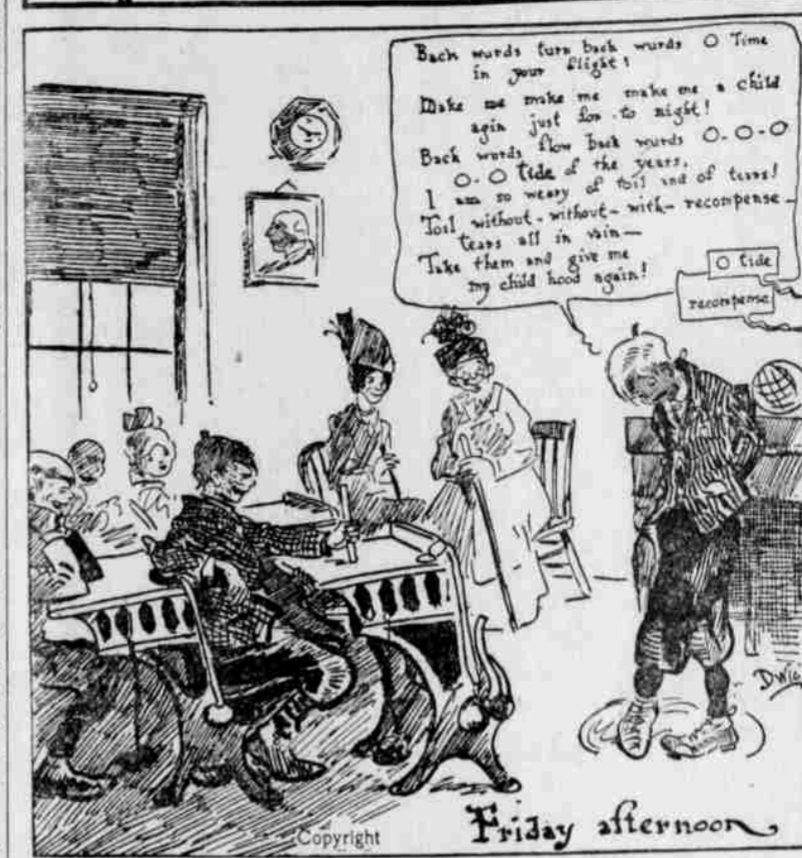 Back wurds turn back wurds O Time
in your flight!
Make me make me make me a child
agin just for-to night!
Back words flow back wurds O-O-O
O-O tide of the years,
I am so weary of toil and of tears!
Toil without-without-with-recompense-
tears all in vain-
Take them and give me
my child hood again!
O tide
recompense
DWIG
Copyright
Friday afternoon